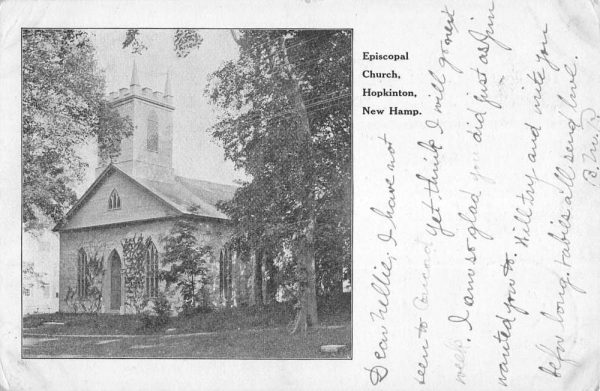 Episcopal
Church,
Hopkinton,
New Hamp.
Dear Nellie; I have not
been to Concord yet think I will go next
week. I am so glad you did just as Jim
wanted you to. Will try and write you
before long. babies all send love.